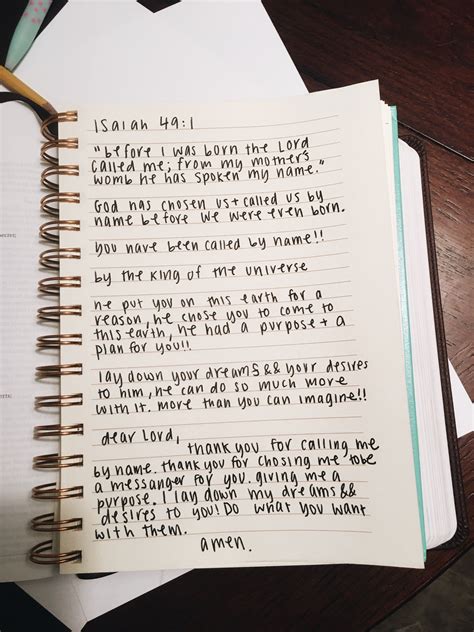 Isaiah 49:1
"before I was born the Lord
called me; from my mother's
womb he has spoken my name."
God has chosen us + called us by
name before we were even born.
you have been called by name!!
by the King of the universe
he put you on this earth for a
reason, he chose you to come to
this earth, he had a purpose + a
plan for you!!
lay down your dreams && your desires
to him, he can do so much more
with it. more than you can imagine!!
dear Lord,
thank you for calling me
by name. thank you for chosing me to be
a messanger for you. giving me a
purpose. I lay down my dreams &&
desires to you! Do what you want
with them.
amen.